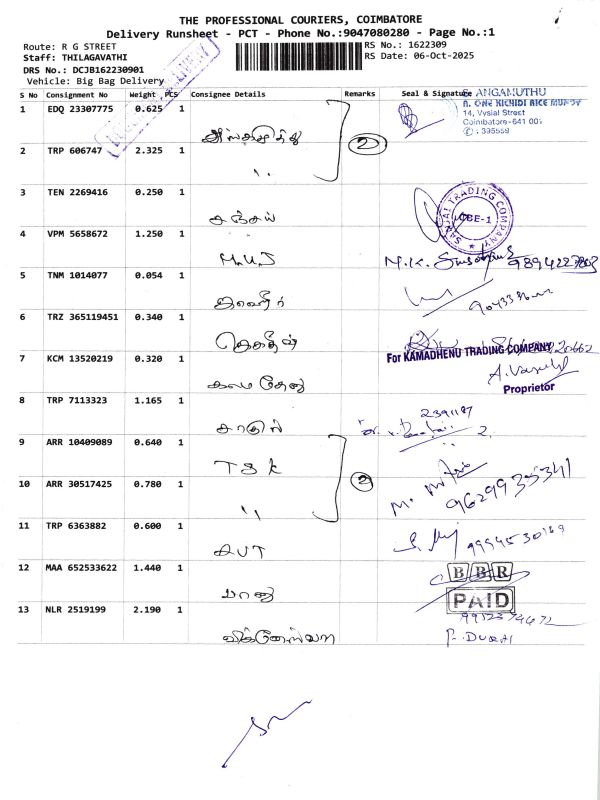 THE PROFESSIONAL COURIERS, COIMBATORE
Delivery Runsheet - PCT - Phone No.:9047080280 - Page No.:1
Route: R G STREET
RS No.: 1622309
Staff: THILAGAVATHI
RS Date: 06-Oct-2025
DRS No.: DCJB162230901
Vehicle: Big Bag Delivery
S No Consignment No Weight PCS Consignee Details Remarks Seal & Signature
ANGAMUTHU
14, Vysial Street
Coimbatore-641 001
: 395559
1 EDQ 23307775 0.625 1
2 TRP 606747 2.325 1 ,, 2
3 TEN 2269416 0.250 1 சஞ்சய்
SANJAI TRADING COMPANY CBE-1
4 VPM 5658672 1.250 1 M.K.
5 TNM 1014077 0.054 1
6 TRZ 365119451 0.340 1
For KAMADHENU TRADING COMPANY
Proprietor
7 KCM 13520219 0.320 1 காம தேனு
8 TRP 7113323 1.165 1
2391187
9 ARR 10409089 0.640 1 TSK
10 ARR 30517425 0.780 1 ,, 2 9629935341
11 TRP 6363882 0.600 1
12 MAA 652533622 1.440 1 பானு
BBR
PAID
13 NLR 2519199 2.190 1 விக்னேஸ்வரா
P. DURAI